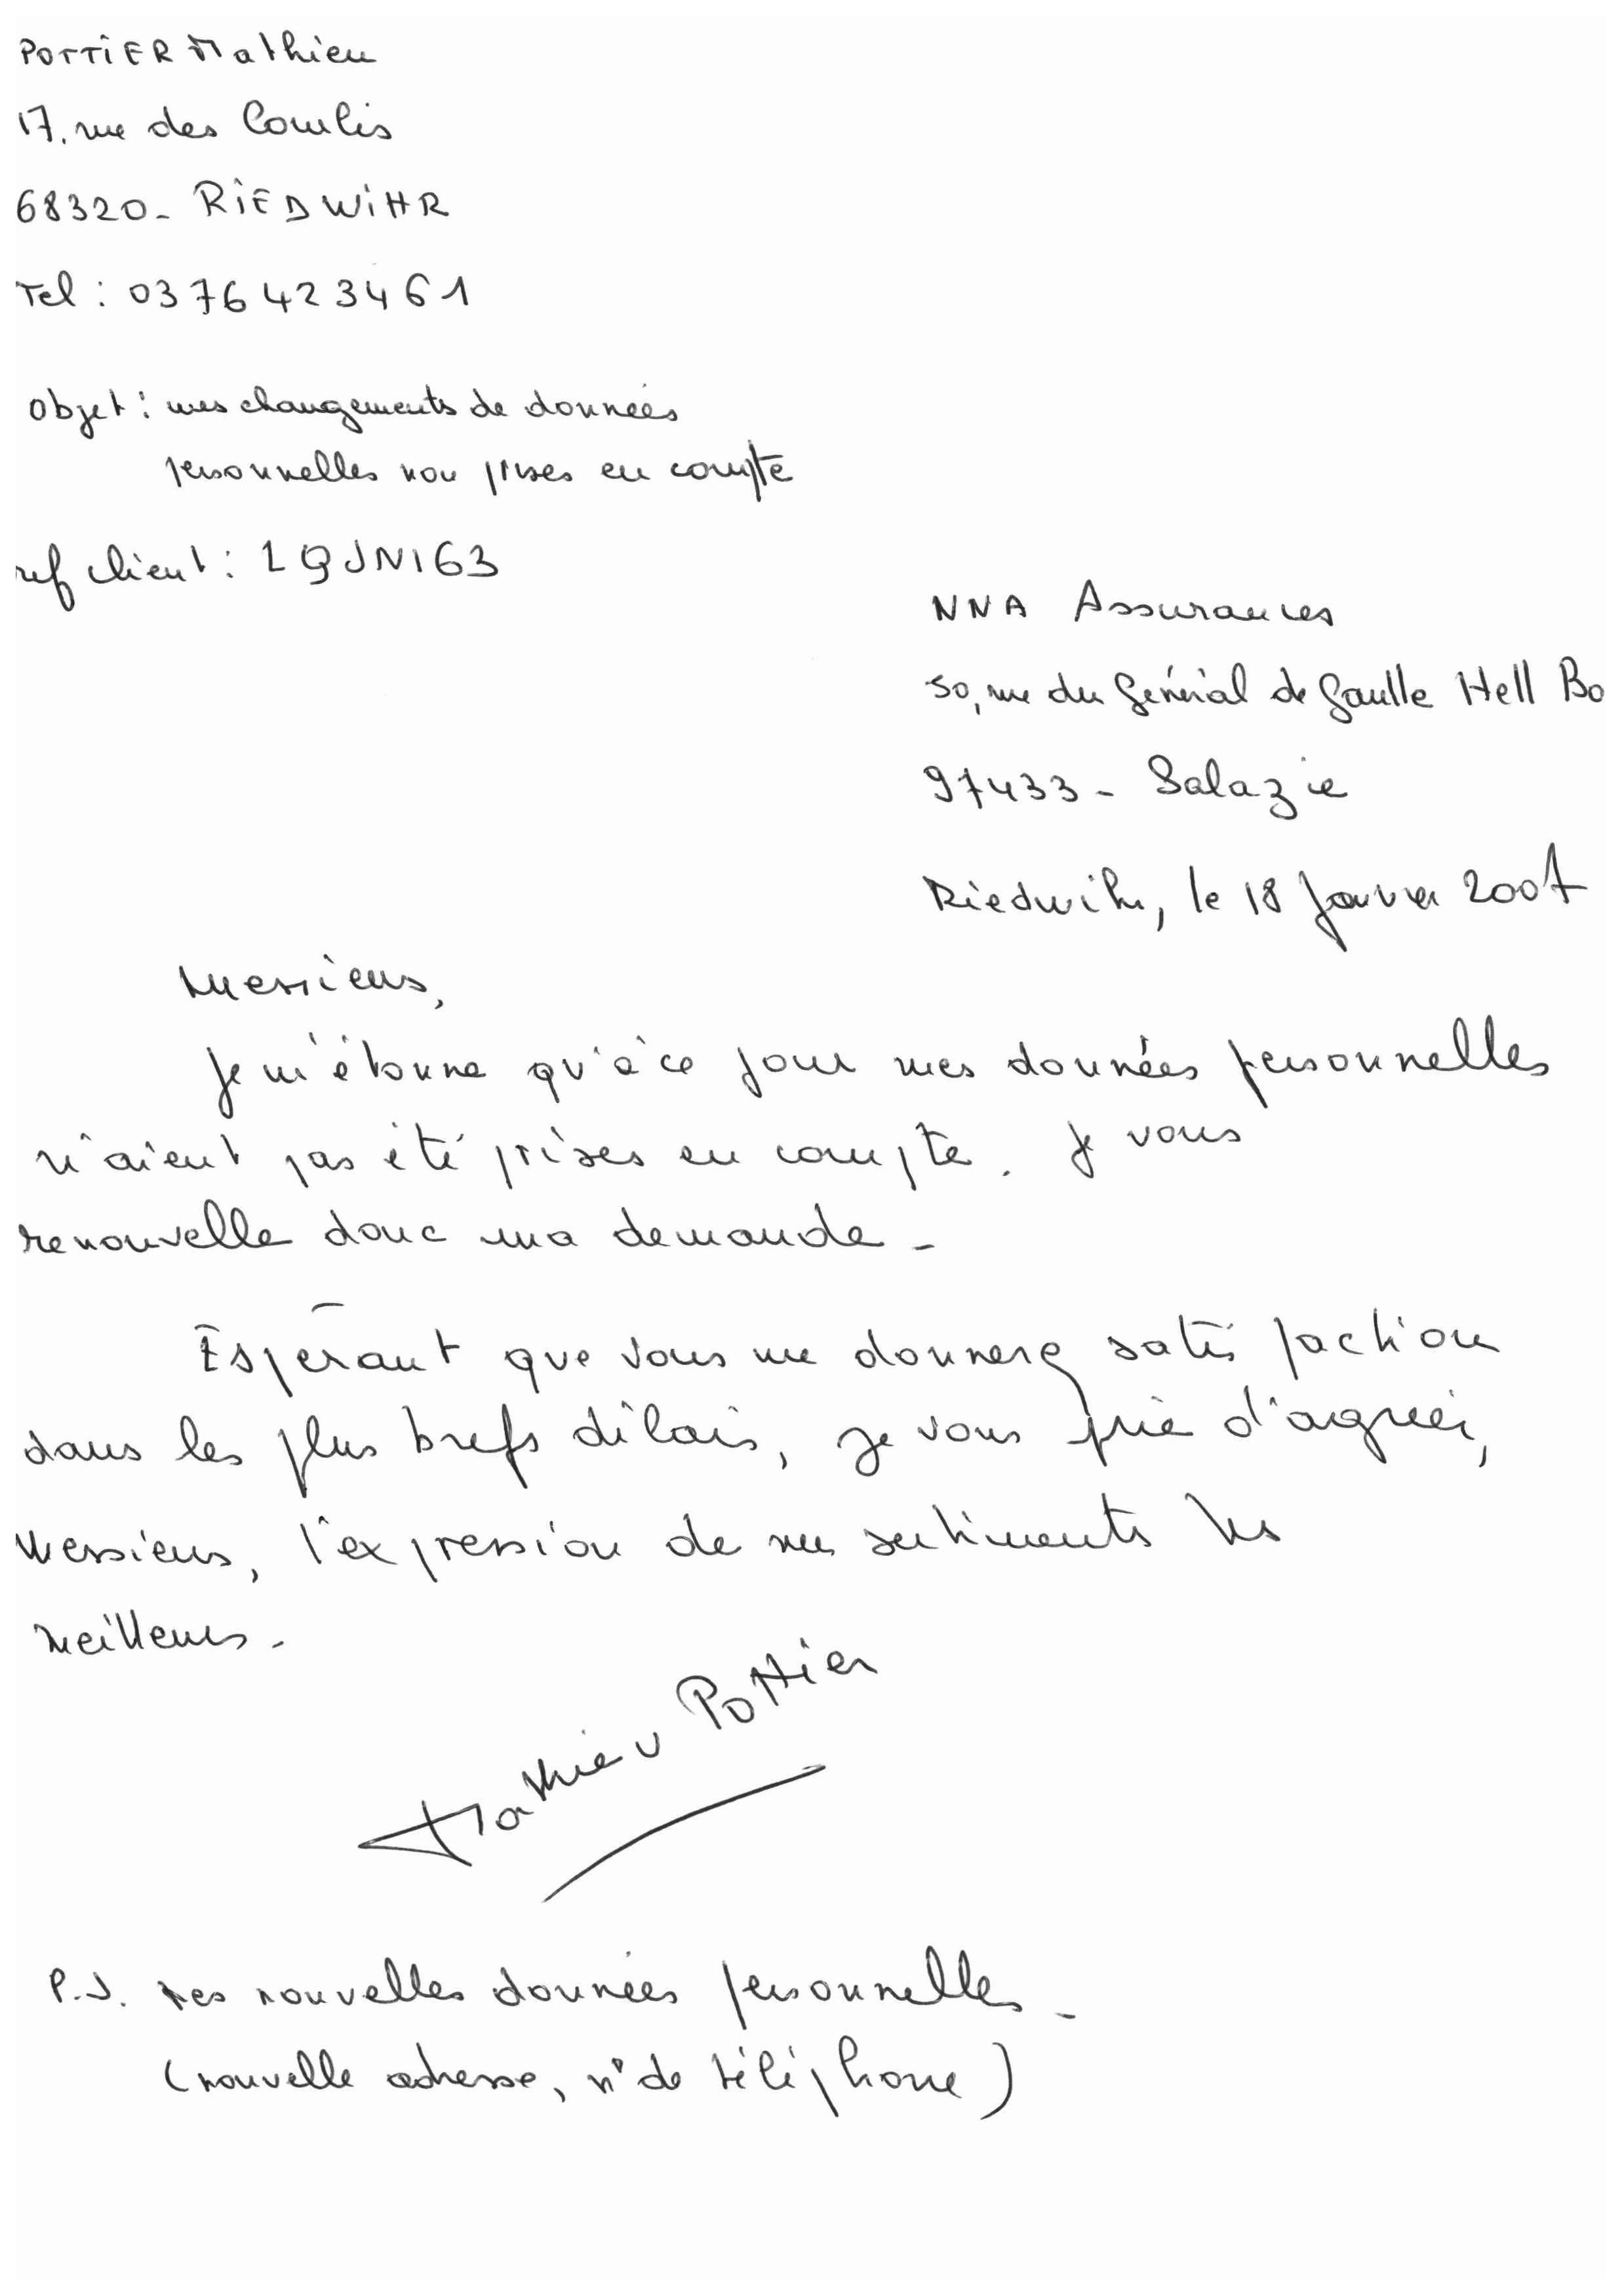 POTTIER Mathieu
17, rue des Courlis
68320 - RIEDWIHR
Tel : 0376423461
Objet : mes changements de données
personnelles non prises en compte
ref client : LQJNI63
NNA Assurances
50, rue du Général de Gaulle Hell Bo
97433 - Salazie
Riedwihr, le 18 janvier 2007
Messieurs,
Je m'étonne qu'à ce jour mes données personnelles
n'aient pas été prises en compte. Je vous
renouvelle donc ma demande -
Espérant que vous me donnerez satisfaction
dans les plus brefs délais, je vous prie d'agréer,
Messieurs, l'expression de mes sentiments les
meilleurs -
Mathieu Pottier
P.J. Mes nouvelles données personnelles -
(nouvelle adresse, n° de téléphone)